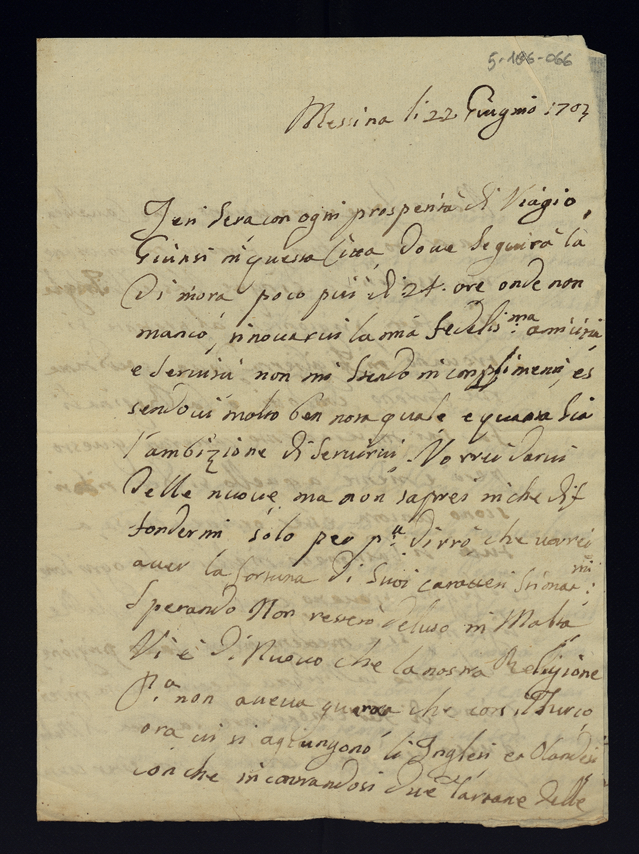 5-186-066
Messina li 22 Giugnio 1703
Jeri sera con ogni prosperità di Viagio
Giunsi in questa Città dove seguirà la
Dimora poco più di 24. ore onde non
manco, rinovarvi la mia fedelis.ma amicizia
e servirvi non mi stendo in complimenti, es
sendovi molto ben nota quale e quanta sia
l'ambizione di servirvi. Vorrei darvi
delle nuove ma non saprei in che dif
fondermi solo per p.te dirrò che vorrei
aver la fortuna di suoi caratteri stimat.mi
Sperando Non resterò deluso in Malta
Vi è di Nuovo che la nostra Religione
p.a non aveva guerra che con Thurco
ora vi si agiungono li Inglesi et Olandesi
con che incontrandosi due Tartane delle